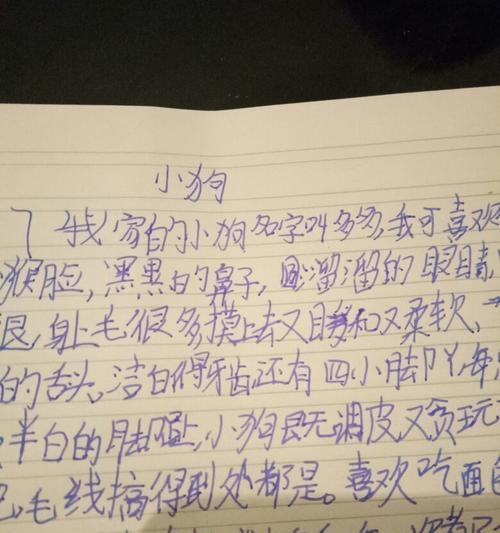 小狗
我家的小狗名字叫多多,我可喜欢
猴脸,黑黑的鼻子,溜溜的眼睛
艮,身上毛很多摸上去又暖和又柔软,
的舌头,洁白得牙齿还有四小脚丫,每
半白的脚,小狗既调皮又贪玩
毛线搞得到处都是。喜欢吃面